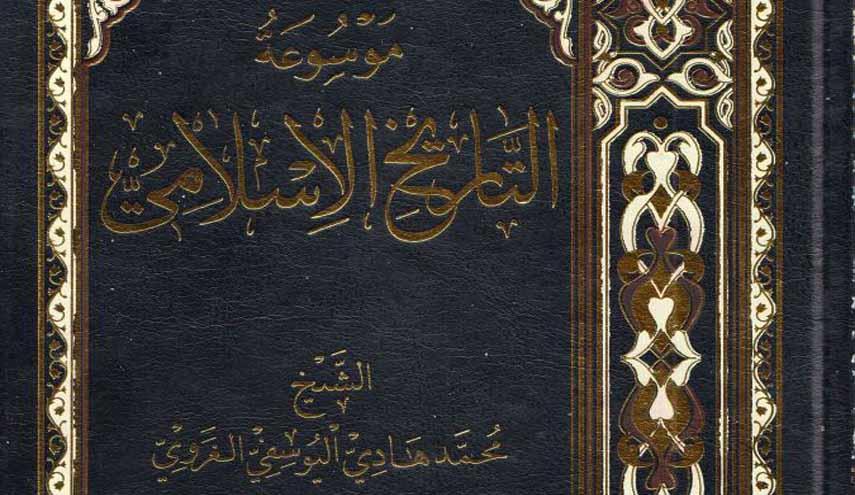 مَوْسُوعَةُ
التَّارِيخِ الإِسْلَامِيِّ
الشَّيْخ
مُحَمَّد هَادِيّ اليُوسُفِيّ الغَرَوِيّ